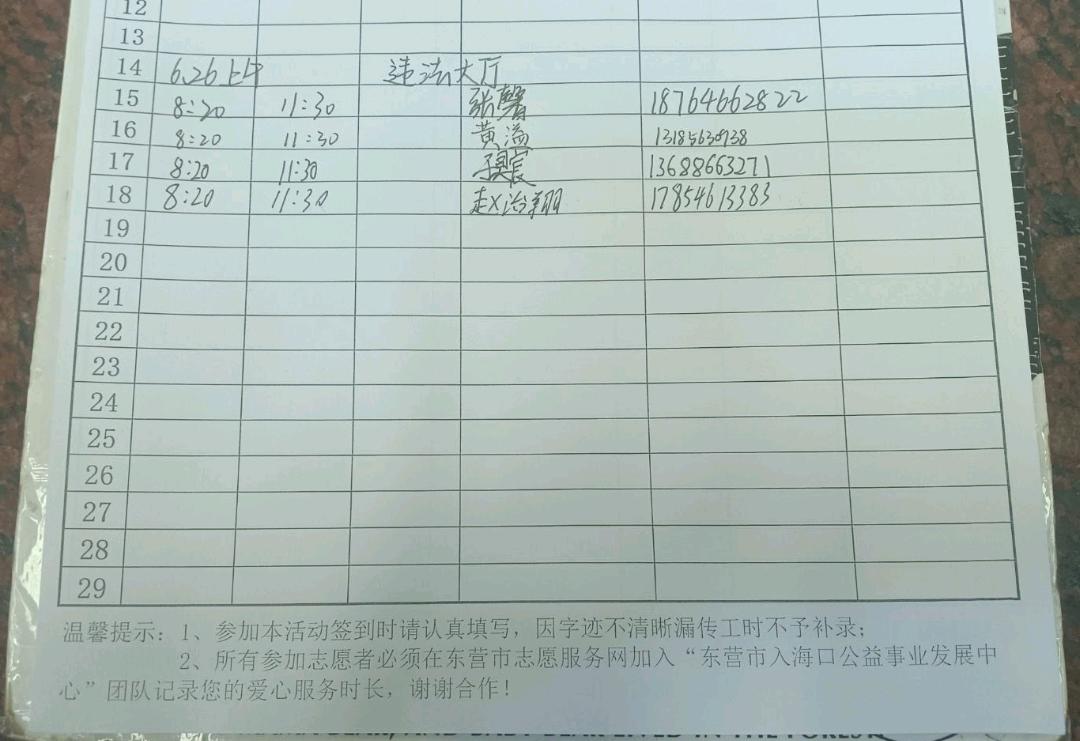 12
13
14 6.26上午 违法大厅
15 8:20 11:30 张馨 18764662822
16 8:20 11:30 黄溢 13185630938
17 8:20 11:30 13688663271
18 8:20 11:30 赵治翔 17854613383
19
20
21
22
23
24
25
26
27
28
29
温馨提示：1、参加本活动签到时请认真填写，因字迹不清晰漏传工时不予补录；
2、所有参加志愿者必须在东营市志愿服务网加入“东营市入海口公益事业发展中
心”团队记录您的爱心服务时长，谢谢合作！